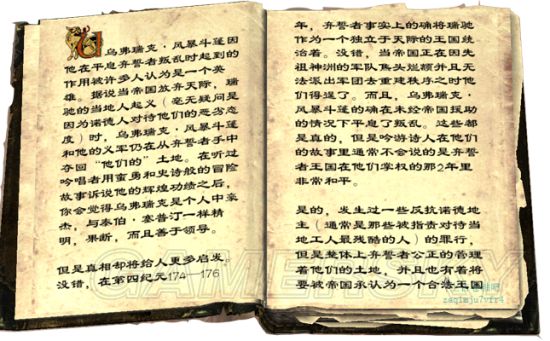 乌弗瑞克·风暴斗篷因
他在平息弃誓者叛乱时起到的
作用被许多人认为是一个英
雄。据说当帝国放弃天际,瑞
驰的当地人起义(毫无疑问是
因为诺德人对待他们的恶劣态
度)时,乌弗瑞克·风暴斗篷
和他的义军仍在从弃誓者手中
夺回“他们的”土地。在听过
吟唱者用蛮勇和史诗般的冒险
故事诉说他的辉煌功绩之后,
你会觉得乌弗瑞克是个人中豪
杰,与泰伯·塞普汀一样精
明,果断,而且善于领导。
但是真相却将给人更多启发。
没错,在第四纪元174—176
年,弃誓者事实上的确将瑞驰
作为一个独立于天际的王国统
治着。没错,当帝国正在因先
祖神洲的军队焦头烂额并且无
法派出军团去重建秩序之时他
们得逞了。而且,乌弗瑞克·
风暴斗篷的确在未经帝国援助
的情况下平息了叛乱。这些都
是真的,但是吟游诗人在他们
的故事里通常不会说的是弃誓
者王国在他们掌权的那2年里
非常和平。
是的,发生过一些反抗诺德地
主(通常是那些被指责对待当
地工人最残酷的人)的罪行,
但是整体上弃誓者公正的管理
着他们的土地,并且也有着将
要被帝国承认为一个合法王国
GAMERSKY
zaqimju7vfr4